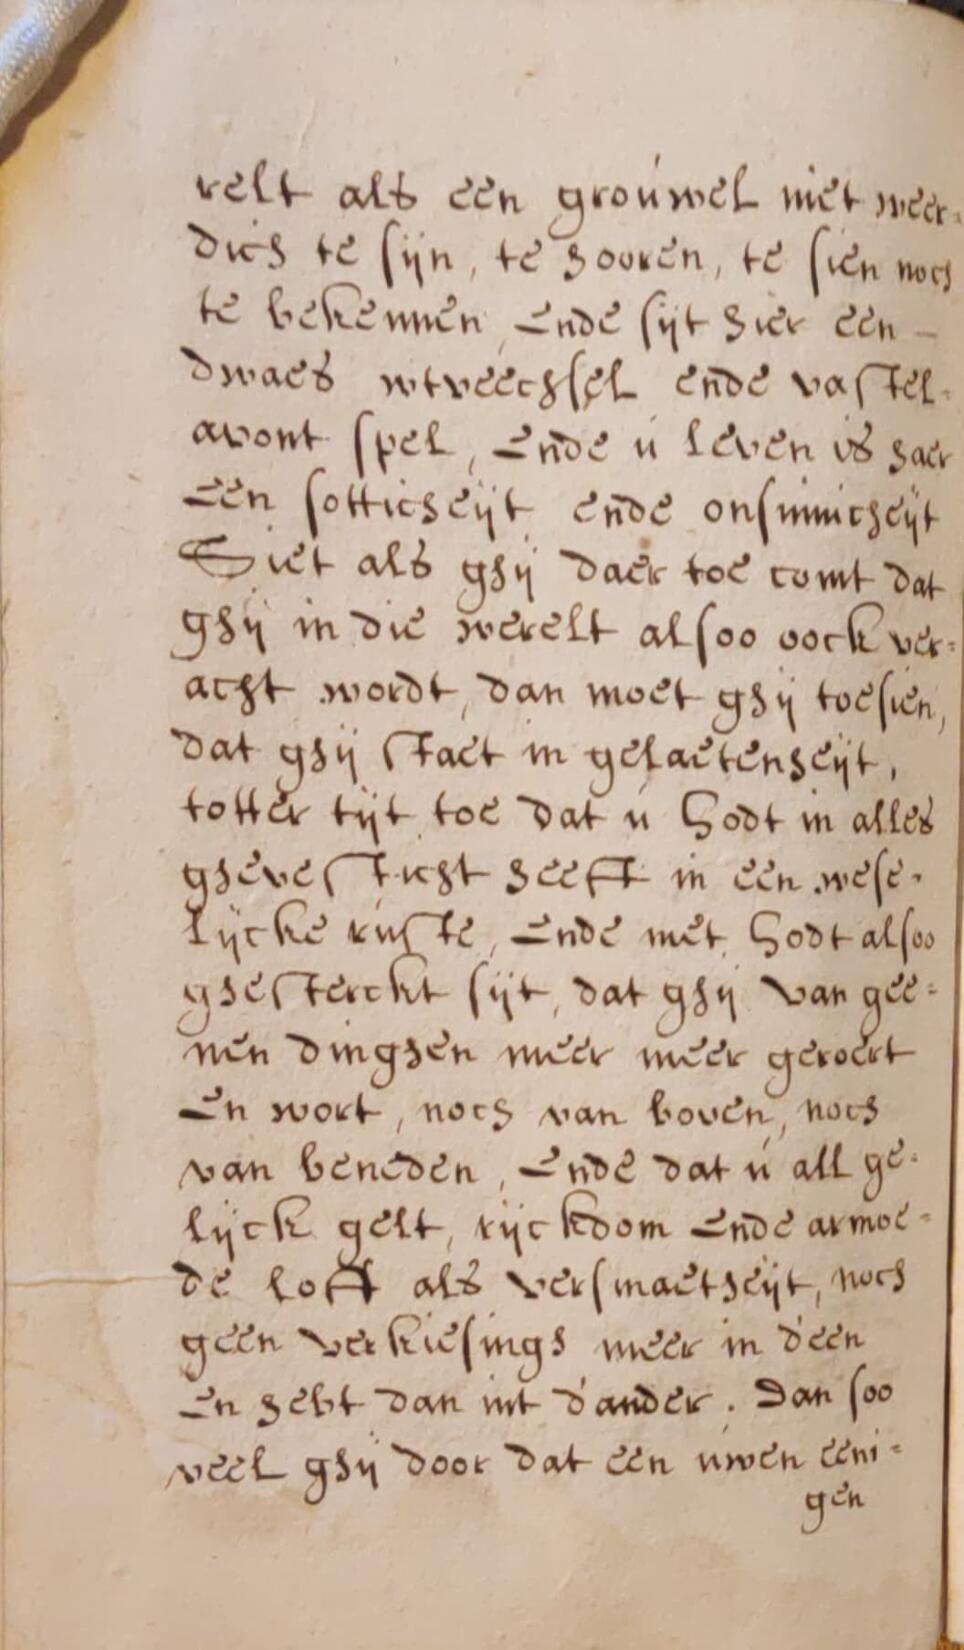 relt als een groúwel niet weer-
dich te sijn, te hooren, te sien noch
te bekennen, Ende sijt hier een -
dwaes wtveechsel ende vastel-
avont spel, Ende ú leven is haer
Een sotticheijt ende onsinnicheijt
Siet als ghij daer toe comt dat
ghij in die werelt alsoo oock ver-
acht wordt, dan moet ghij toesien,
dat ghij staet in gelaetenheijt,
totter tijt toe dat ú Godt in alles
ghevesticht heeft in een wese-
lijcke rúste, Ende met Godt alsoo
ghesterckt sijt, dat ghij van gee-
nen dinghen meer meer geroert
En wort, noch van boven, noch
van beneden, Ende dat ú all ge-
lijck gelt, rijckdom Ende armoe-
de loff als versmaetheijt, noch
geen verkiesingh meer in d'een
En hebt dan int d'ander. Dan soo
veel ghij door dat een úwen eeni-
gen